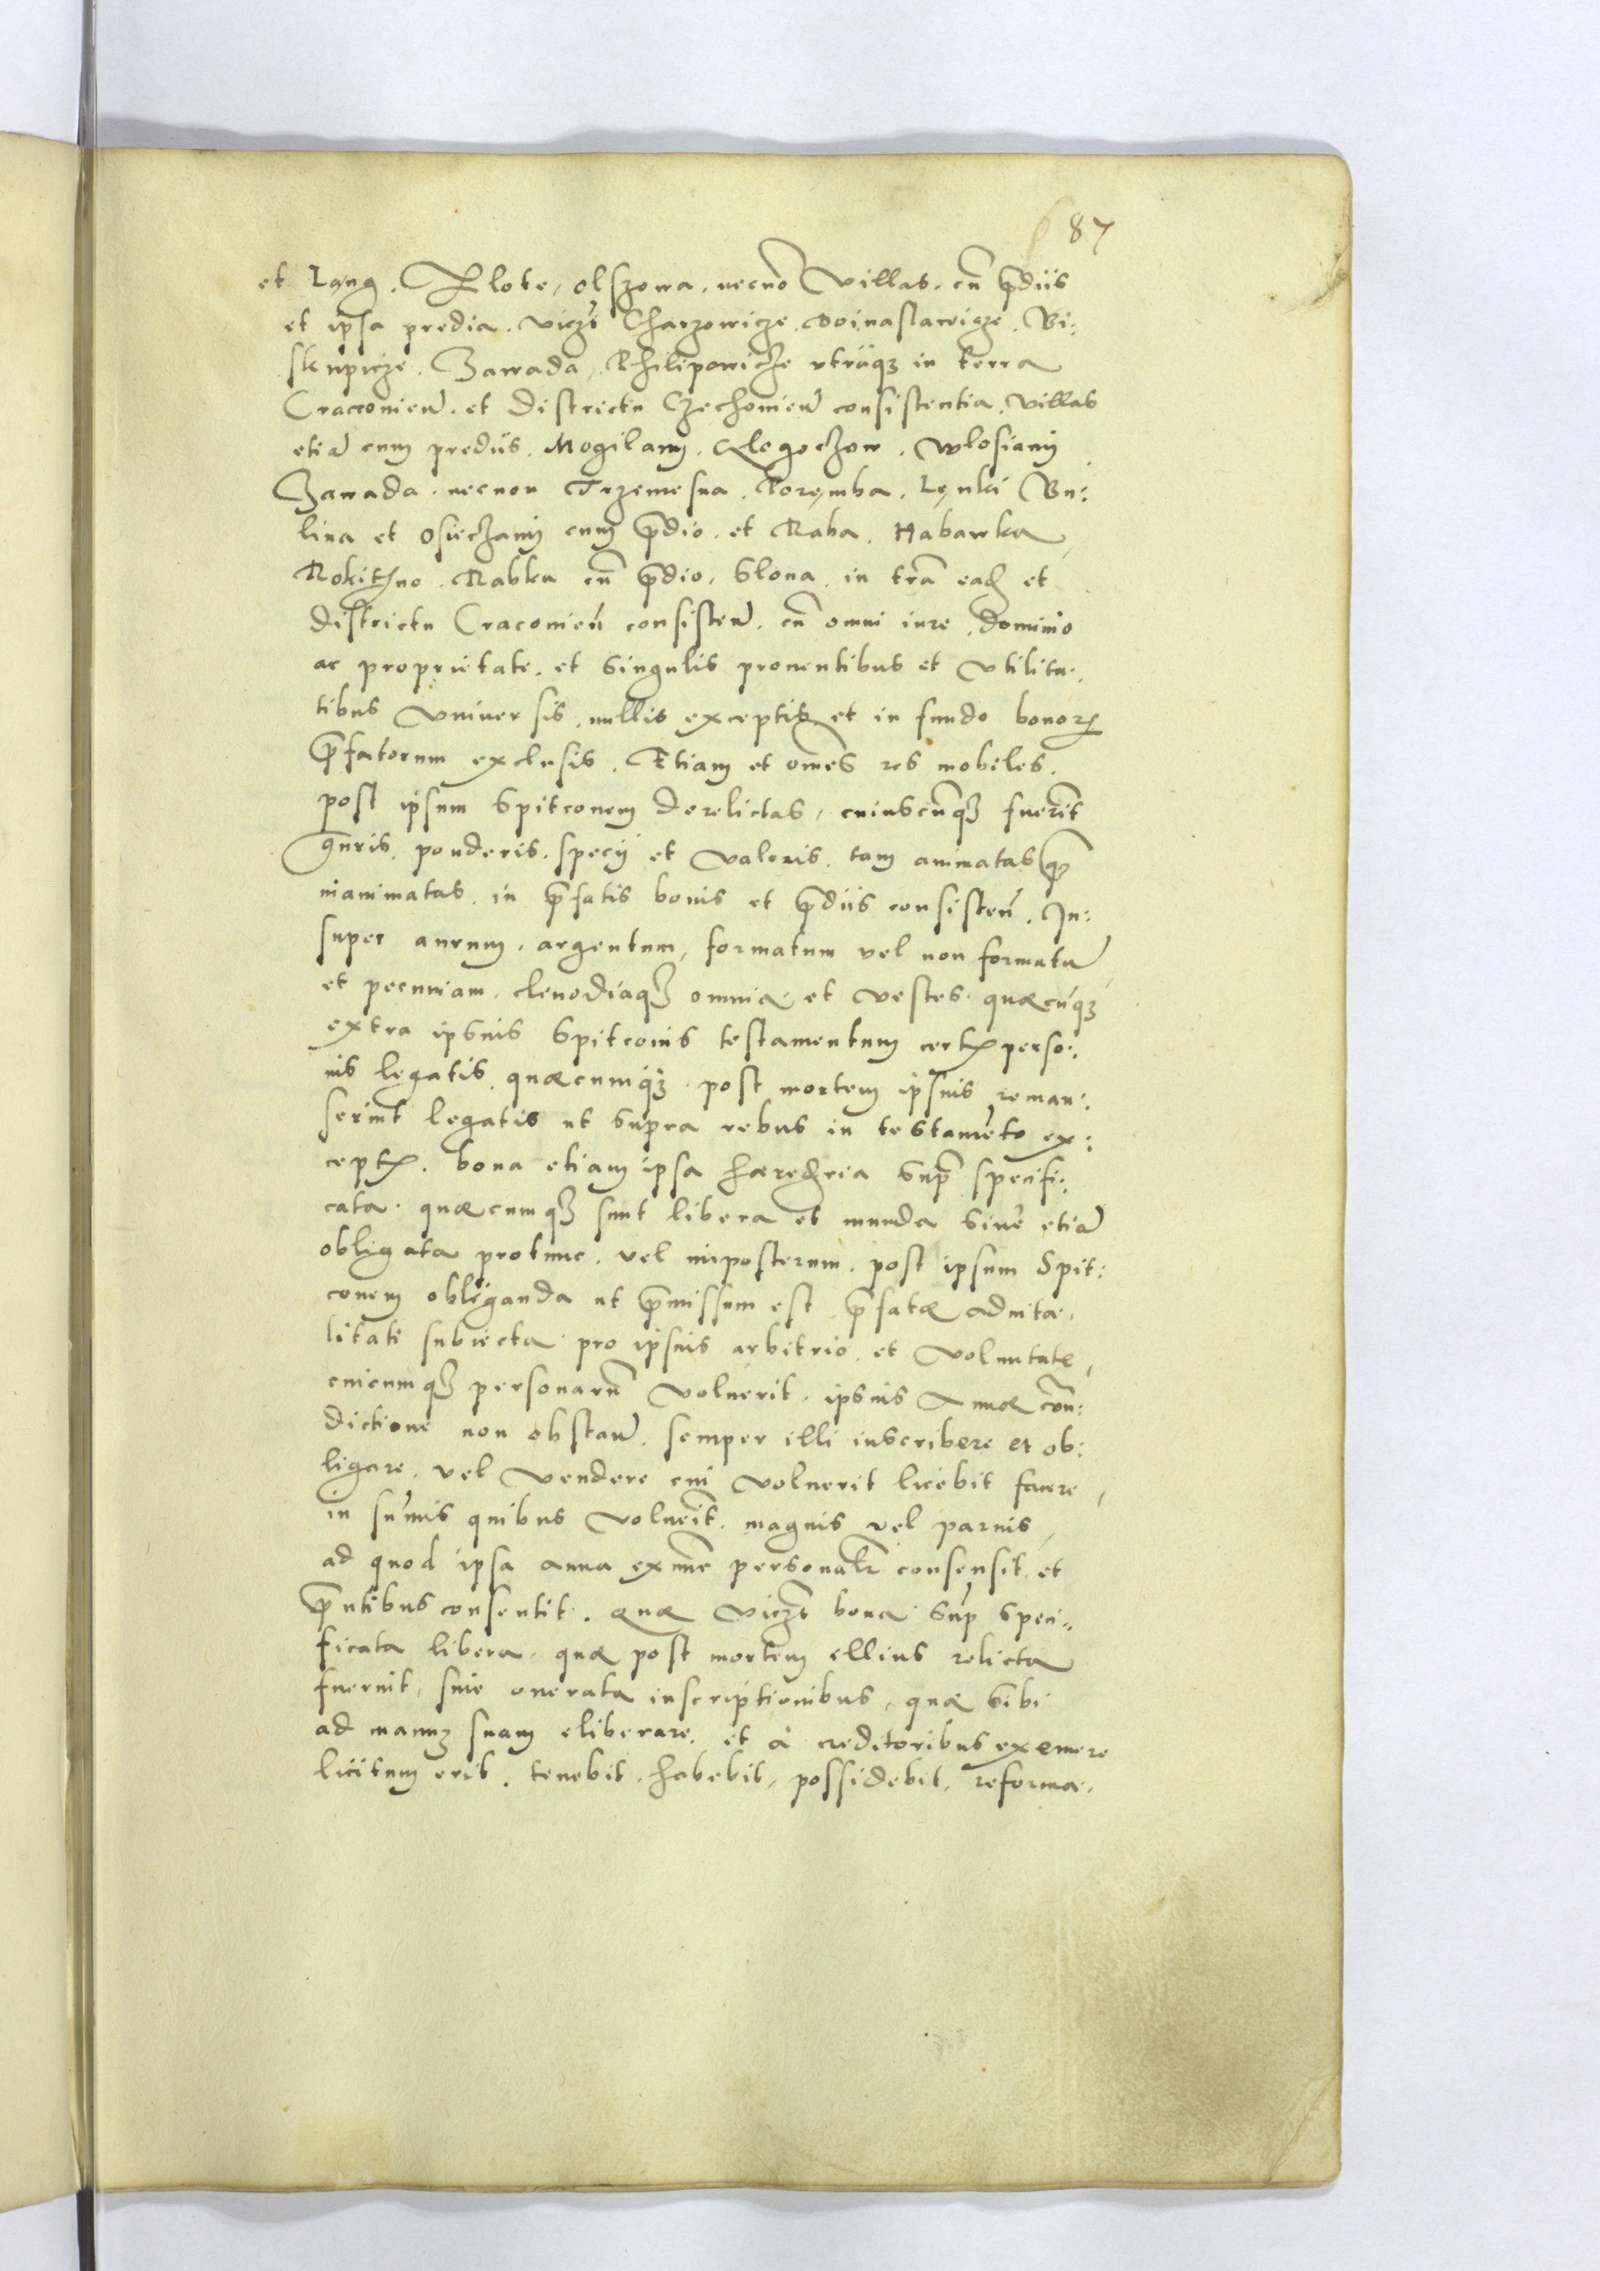 87
et Lang. Zlote, olszowa. necno Villas. cũ p̃diis
et ipsa predia. Viczt Charzowicze. Doinaslawicze. Bi:
skupicze. Zawada, Philipowicze vtrāqz in terra
Cracouien̄. et Districtu Czechouien̄ consistentia. Villas
etiā cum prediis. Mogilany. Glogoczow. Wlosiany
Zawada. necnon Trzemesna. Poręmba. Lęnki Bu:
lina et Osieczany cum p̃dio. et Raba. Habawka,
Rokitzno. Rabka cũ p̃dio, Slona. in trā ead et
districtu Cracouień consisten̄. cũ omni iure, dominio
ac proprietate. et singulis prouentibus et Vtilita.
tibus Vniuersis. nullis exceptis et in fundo bonorꝝ
p̃fatorum exclusis. Etiam et om̃es res mobiles.
post ipsum Spitconem derelictas, cuiuscũqz fuerīt
gn̄ris. ponderis. specij et Valoris. tam animatas qȝ
inanimatas. in p̃fatis bonis et p̃diis consisteń. In:
super aurum. argentum, formatum vel non formatū
et pecuniam. clenodiaqz omnia et Vestes. quæcūqz
extra ipsius Spitconis testamentum certis perso:
nis legatis. quæcumqz. post mortem ipsius reman:
serint legatis ut supra rebus in testamēto ex:
ceptis. bona etiam ipsa hæredria sup̃ specifi:
cata. quæcumqz sunt libera et munda siue etiā
obligata protunc. vel inposterum. post ipsum Spit:
conem obliganda ut p̃missum est. p̃fatæ aduita.
litati subiecta. pro ipsius arbitrio. et Voluntate,
cuicumqz personarū Voluerit. ipsius Annæ cõn:
dictione non obstan̄. semper illi inscribere et ob:
ligare. vel Vendere cui Voluerit licebit facere,
in sūmis quibus Voluerīt. magnis vel paruis,
ad quod ipsa Anna ex nūc personalr̄ consensit. et
p̃ntibus consentit. Quæ Viczt bona sup̃ speci„
ficata libera. quæ post mortem illius relicta
fuerint, siue onerata inscriptionibus, quæ sibi
ad manuz suam eliberare. et à creditoribus exemere
licitum erit. tenebit. habebit, possidebit, reforma.